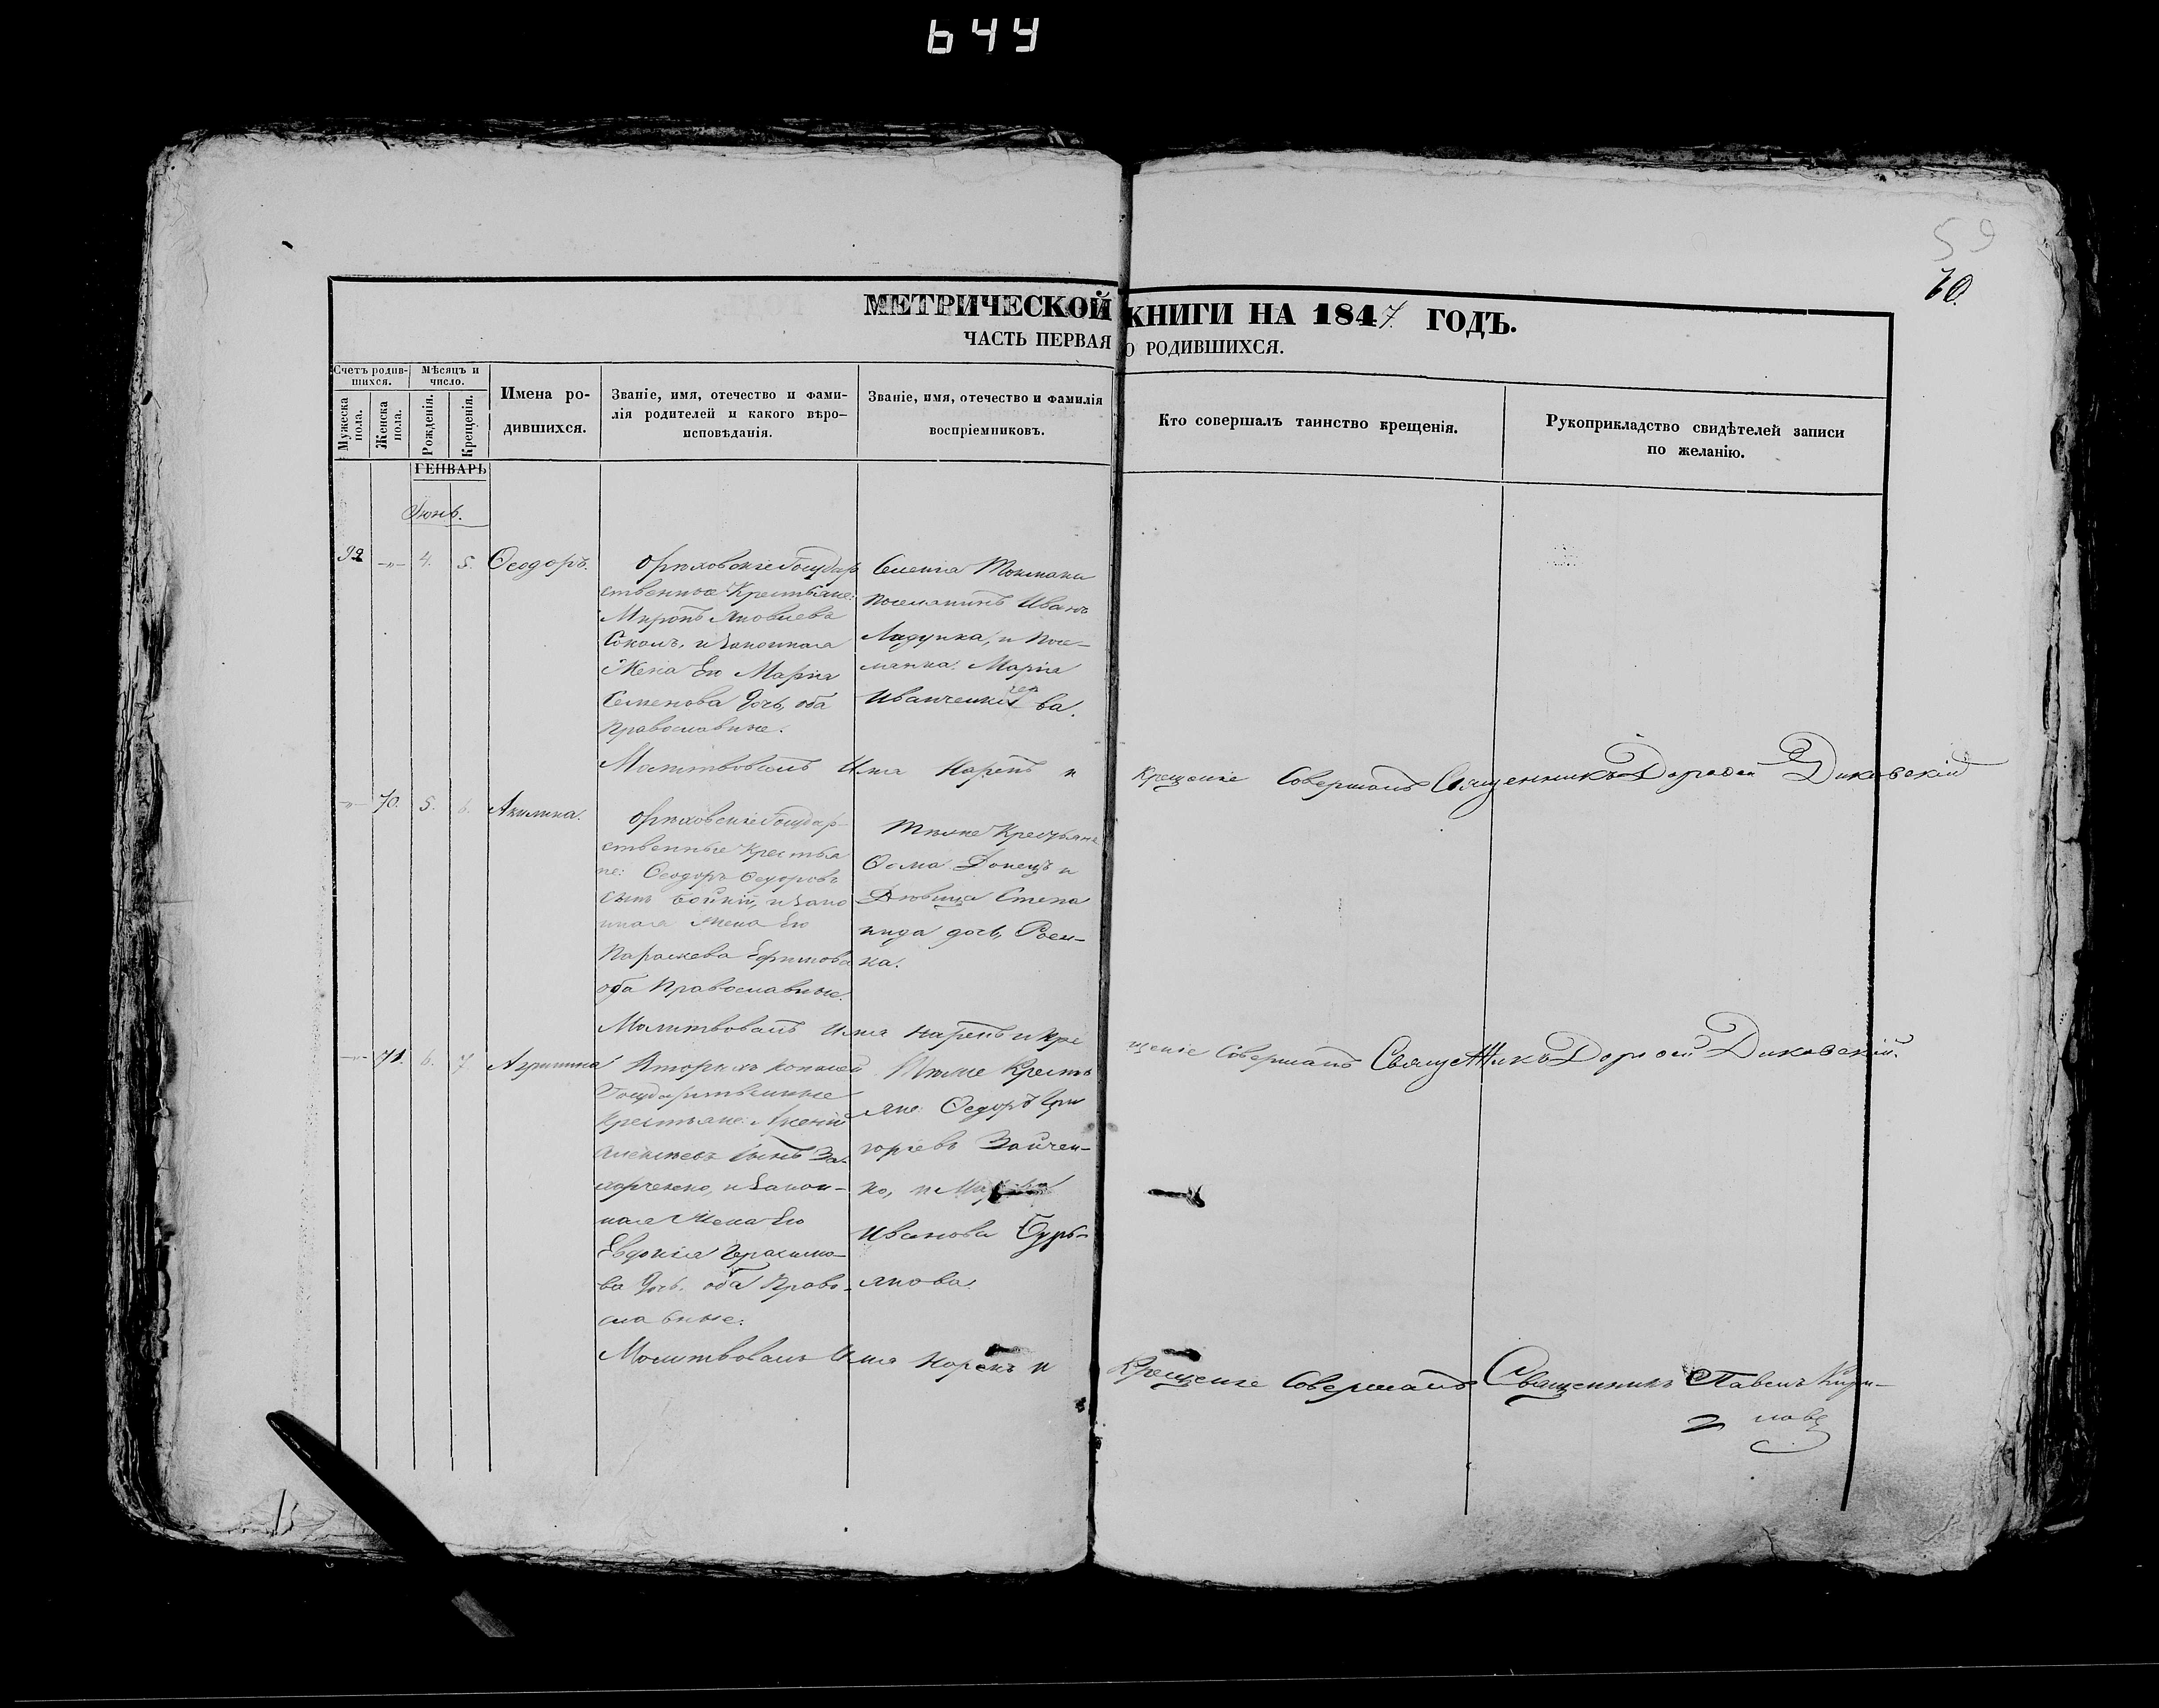 644
59
70.
МЕТРИЧЕСКОЙ КНИГИ НА 1847. ГОДЪ.
ЧАСТЬ ПЕРВАЯ О РОДИВШИХСЯ.
Счетъ родив-
шихся.
Мужеска
пола.
Женска
пола.
Мѣсяцъ и
число.
Рожденія.
Крещенія.
Имена ро-
дившихся.
Званіе, имя, отечество и фами-
лія родителей и какого вѣро-
исповѣданія.
Званіе, имя, отечество и фамилія
воспріемниковъ.
Кто совершалъ таинство крещенія.
Рукоприкладство свидѣтелей записи
по желанію.
ГЕНВАРЬ
Іюнь.
92 -"- 4. 5. Ѳеодоръ.
Орѣховскіе Государ
ственные Крестьяне:
Миронъ Яковлевъ
Соколъ, и Законная
Жена Его Марѳа
Семенова дочь, оба
Православные.
Селенія Токмака
поселянинъ Иванъ
Ладупка, и посе-
лянка Марія
Иванченкова.
Молитвовалъ Имя Нарекъ и Крещеніе Совершалъ Священникъ Дороѳей Диковскій
-"- 70. 5. 6. Акилина.
Орѣховскіе Государ-
ственные Крестья
не: Ѳеодоръ Ѳедоровъ
сынъ Бойкій, и Зако
нная жена Его
Параскева Ефимова
оба Православные.
Тѣже Крестьяне
Ѳома Донецъ и
Дѣвица Степа
нида дочь,
ка.
Молитвовалъ Имя нарекъ и Кре
щеніе Совершалъ Священникъ Дороѳей Диковскій.
-"- 71. 6. 7 Агрипина
Государственные
Крестьяне: Арсеній
Алексѣевъ Сынъ За-
и Закон-
ная Жена Его
Евфимія Герасимо-
ва дочь. оба Право-
славные.
Тѣже Кресть
яне: Ѳедоръ Гри
горьевъ Зайчен-
ко, и
Иванова Гурь-
янова.
Молитвовалъ Имя Нарекъ и Крещеніе Совершалъ Священникъ Павелъ Кири-
ловъ